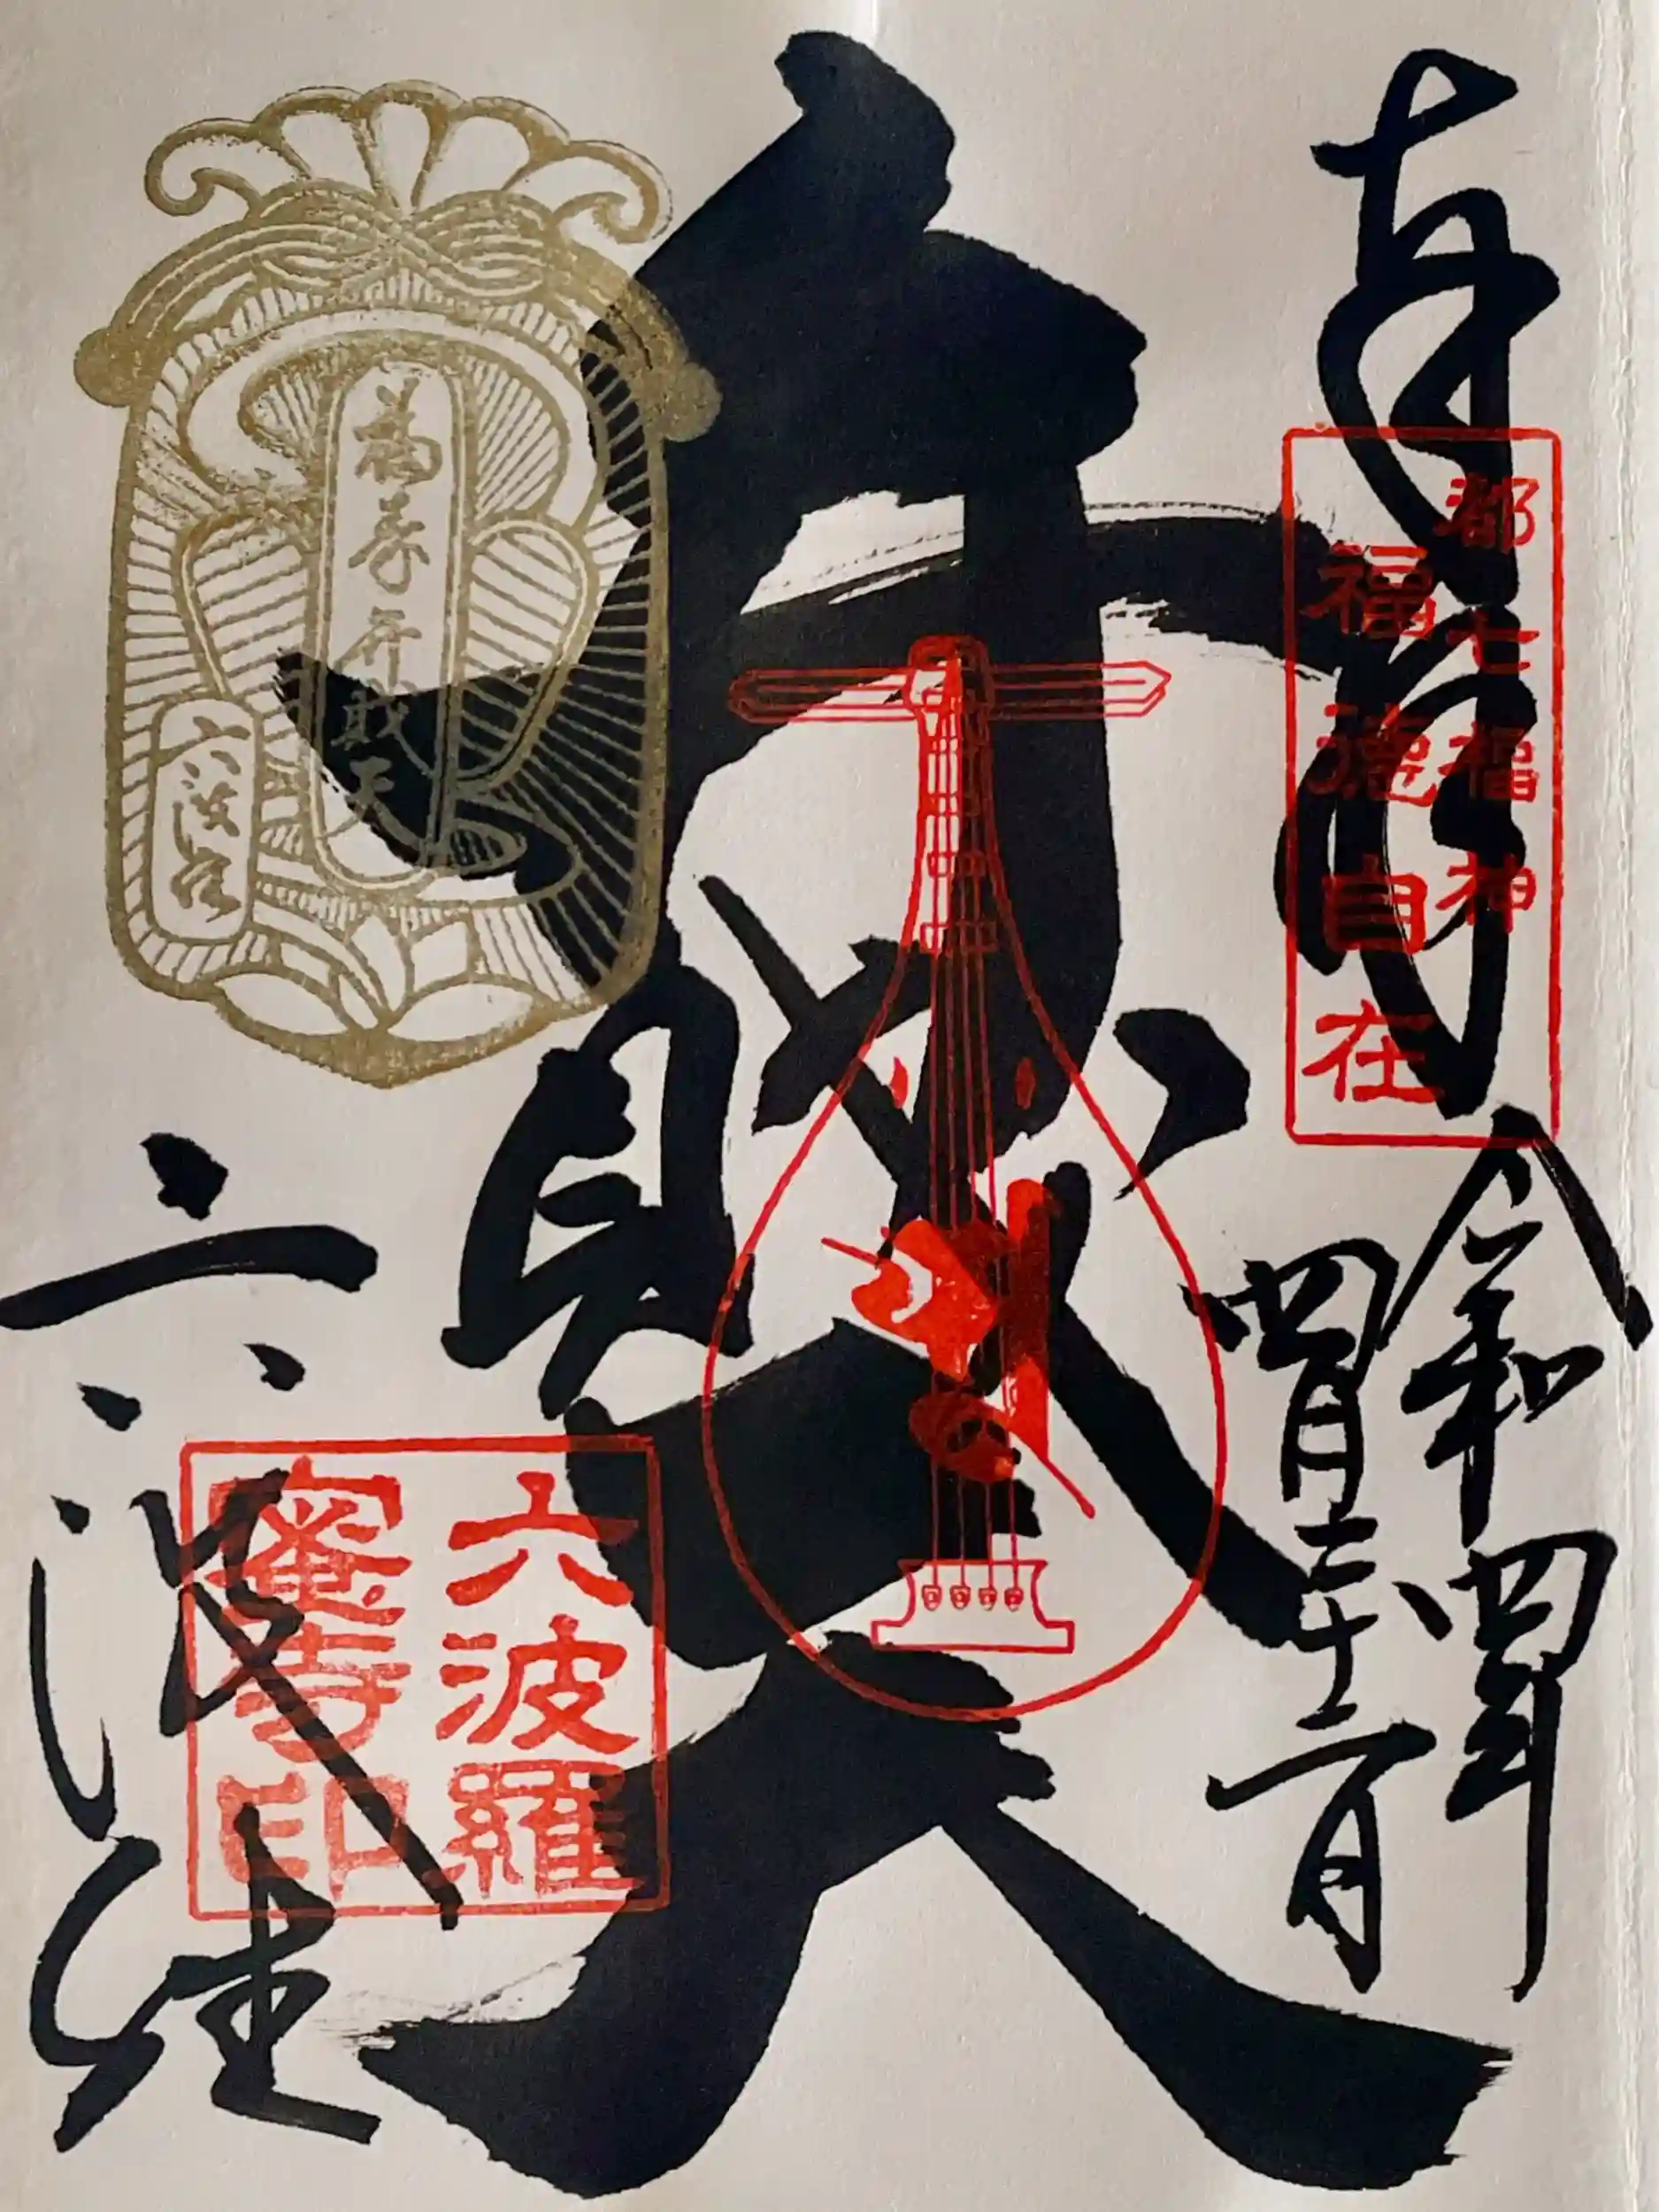 奉拝
都七福神
福徳自在
令和四年
四月二十二日
弁財天
福寿弁財天
六波羅
六波羅
蜜寺印
六波羅